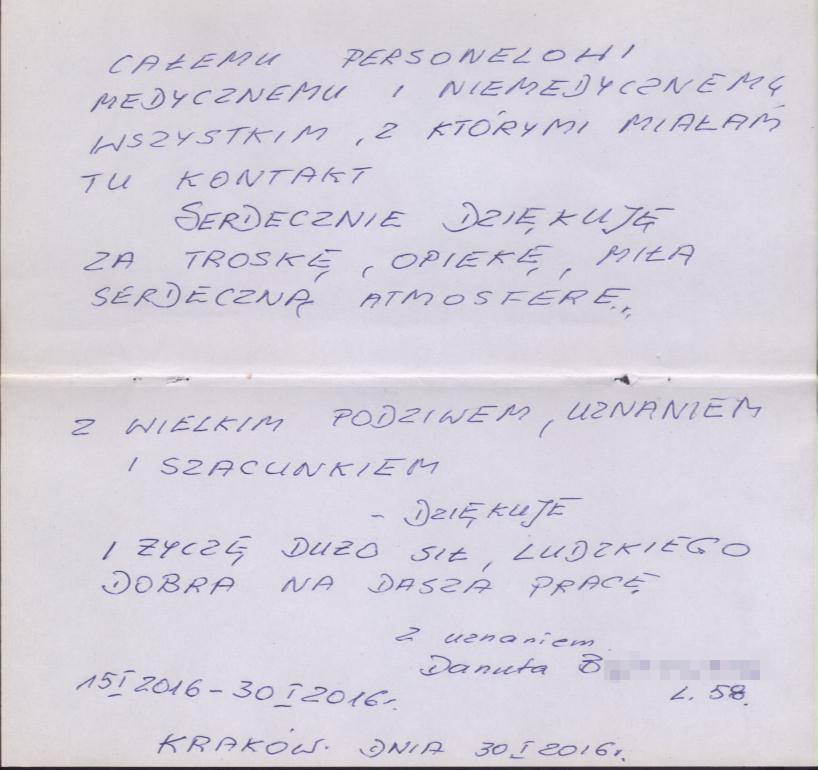 CAŁEMU PERSONELOWI
MEDYCZNEMU I NIEMEDYCZNEMU
WSZYSTKIM , Z KTÓRYMI MIAŁAM
TU KONTAKT
SERDECZNIE DZIĘKUJĘ
ZA TROSKĘ , OPIEKĘ , MIŁA
SERDECZNĄ ATMOSFERĘ.,
Z WIELKIM PODZIWEM , UZNANIEM
I SZACUNKIEM
- DZIĘKUJE
I ZYCZĘ DUZO SIŁ, LUDZKIEGO
DOBRA NA DASZA PRACĘ
Z uznaniem
Danuta B
15 I 2016 - 30 I 2016r. L. 58.
KRAKÓW. DNIA 30 I 2016r.